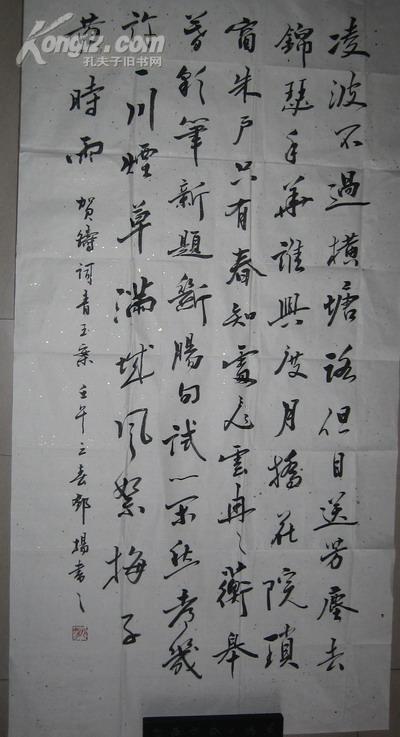 Kongfz.com
孔夫子旧书网
凌波不過橫塘路但目送芳塵去
錦瑟年華誰與度月橋花院瑣
窗朱戶只有春知處飛雲冉々蘅皋
暮彩筆新題斷腸句試问闲愁都幾
許一川煙草滿城風絮梅子
黃時雨 賀鑄詞青玉案 壬午之春 揚書之